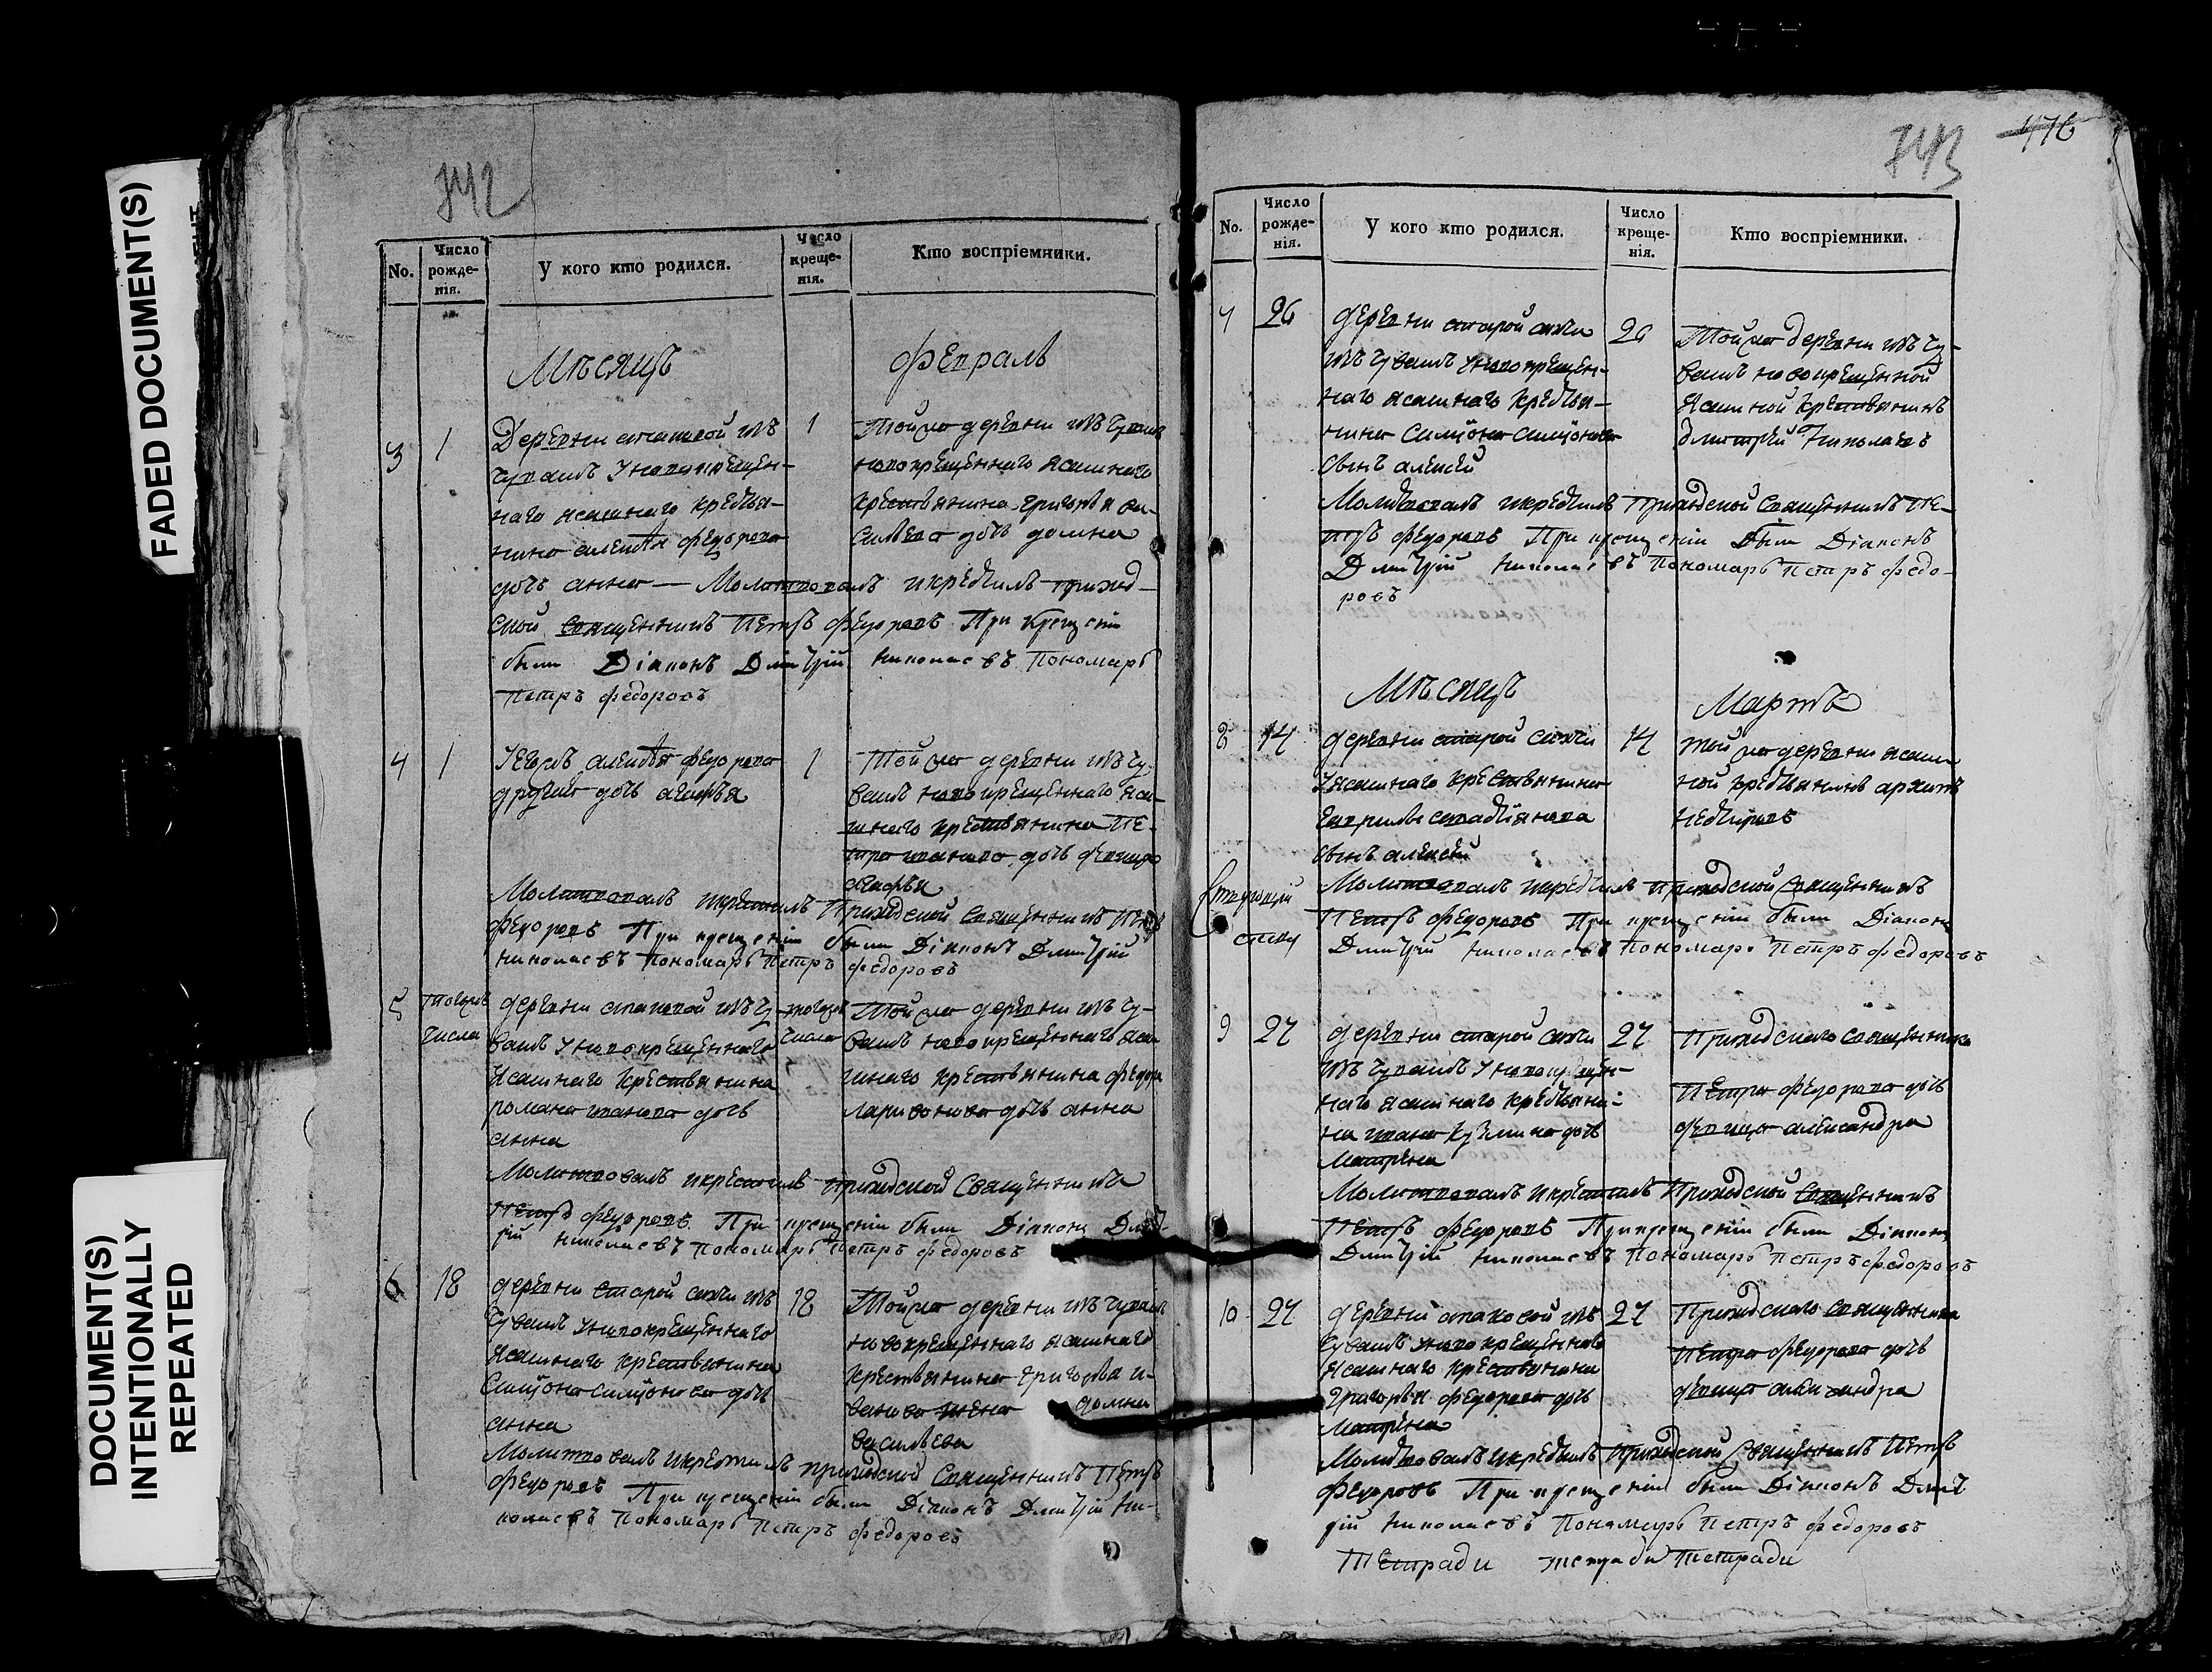 FADED DOCUMENT(S)
DOCUMENT(S)
INTENTIONALLY
REPEATED
742
No.
Число
рожде-
нія.
У кого кто родился.
Число
креще-
нія.
Кто воспріемники.
Мѣсяцъ Февраль
3 1
Деревни изъ
чувашъ у новокрещен-
наго ясашнаго крестья-
нина Федорова
дочь анна — Молитвовалъ и крестилъ приход-
ской священникъ Петръ Федоровъ При крещеніи
были Діаконъ Дмитрій Николаевъ Пономарь
Петръ Федоровъ
1
Той же деревни изъ чувашъ
новокрещеннаго ясашнаго
крестьянина григорья ва-
сильева дочь домна
4 1
Федорова
другая дочь агафья
1
Той же деревни изъ чу-
вашъ новокрещеннаго яса-
шнаго крестьянина Пе-
тра иванова дочь девица
агафья
Молитвовалъ и крестилъ Приходской священникъ Петръ
Федоровъ При крещеніи были Діаконъ Дмитрій
Николаевъ Пономарь Петръ Федоровъ
5 числа
деревни изъ чу-
вашъ у новокрещеннаго
ясашнаго крестьянина
романа иванова дочь
анна
числа
Той же деревни изъ чу-
вашъ новокрещеннаго яса-
шнаго крестьянина федора
ларивонова дочь анна
Молитвовалъ и крестилъ приходской Священникъ
Петръ Федоровъ При крещеніи были Діаконъ Дмит-
рій Николаевъ Пономарь Петръ Федоровъ
6 18
деревни старой изъ
чувашъ у новокрещеннаго
ясашнаго крестьянина
Симіона Симіонова дочь
анна
18
Той же деревни изъ чувашъ
новокрещеннаго ясашнаго
крестьянина григорья и-
ванова жена домна
васильева
Молитвовалъ и крестилъ приходской Священникъ Петръ
Федоровъ При крещеніи были Діаконъ Дмитрій Ни-
колаевъ Пономарь Петръ Федоровъ
743 476
No.
Число
рожде-
нія.
У кого кто родился.
Число
креще-
нія.
Кто воспріемники.
7 26
деревни старой
изъ чувашъ у новокрещен-
наго ясашнаго крестья-
нина Симіона Симіонова
сынъ алексей
26
Той же деревни изъ чу-
вашъ новокрещенной
ясашной крестьянинъ
дмитрей Николаевъ
Молитвовалъ и крестилъ приходской Священникъ Пе-
тръ Федоровъ При крещеніи были Діаконъ
Дмитрій Николаевъ Пономарь Петръ Федо-
ровъ
Мѣсяцъ Мартъ
8 14
деревни старой
у ясашнаго крестьянина
гаврилы
сынъ алексей
14
той же деревни ясаш
ной крестьянинъ архипъ
Молитвовалъ и крестилъ приходской Священникъ
Петръ Федоровъ При крещеніи были Діаконъ
Дмитрій Николаевъ Пономарь Петръ Федоровъ
9 27
деревни старой
изъ чувашъ у новокрещен-
наго ясашнаго крестьяни-
на ивана Кузмина дочь
матрена
27
Приходскаго священника
Петра Федорова дочь
девица александра
Молитвовалъ и крестилъ Приходской Священникъ
Петръ Федоровъ При крещеніи были Діаконъ
Дмитрій Николаевъ Пономарь Петръ Федоровъ
10 27
деревни изъ
чувашъ у новокрещеннаго
ясашнаго крестьянина
григорья Федорова дочь
матрена
27
Приходскаго священника
Петра Федорова дочь
девица александра
Молитвовалъ и крестилъ приходской Священникъ Петръ
Федоровъ При крещеніи были Діаконъ Дмит
рій Николаевъ Пономарь Петръ Федоровъ
Тетради тетради тетради